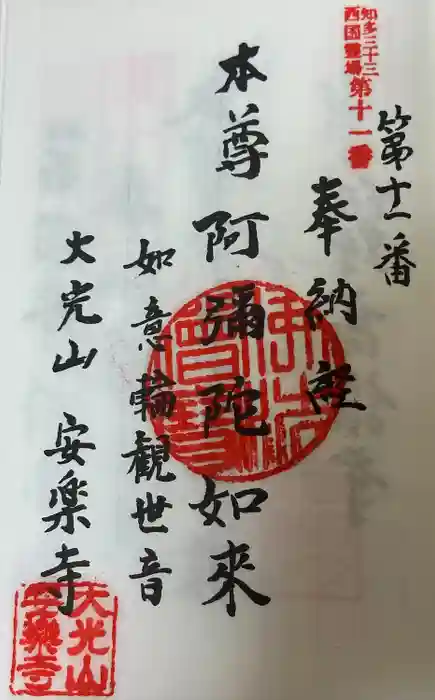 知多三十三
西国霊場第十一番
第十一番
奉納経
本尊阿彌陀如来
如意輪観世音
大光山安楽寺
大光山
安樂寺